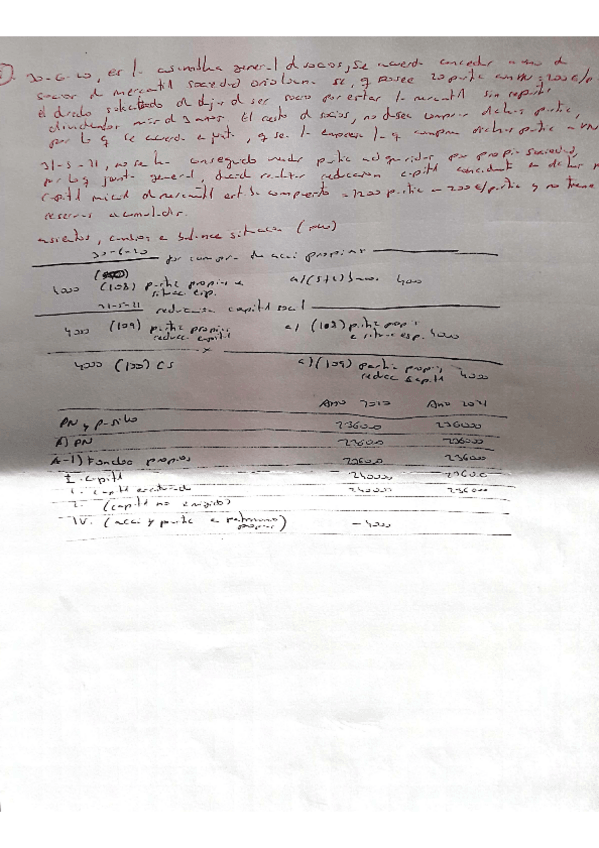 30-6-20, en la asamblea general d socios, se acuerda conceder a uno de
socios d mercantil sociedad se, q posee 20 partic a VN = 200 €/p
el derecho solicitado d dejar d ser socio por estar la mercantil sin repartir
dividendos más d 3 años. El resto d socios, no desea comprar dichas partic,
por lo q se acuerda en junta, q sea la empresa la q compra dichas partic a VN
31-5-21, no se ha conseguido vender partic adquiridas por propia sociedad,
por lo q junta general, decide realizar reducción capital
capital inicial d mercantil estaba compuesto = 1200 partic = 200 €/partic y no tiene
reservas acumuladas.
asientos, cambios a balance situación
30-6-20 por compra de acci propias
4000 (108) partic propias e situac esp. a/ (572) banc 4000
31-5-21 reducción capital social
4000 (109) partic propias reducc capital a/ (108) partic propi e situac esp. 4000
x
4000 (100) CS a/ (109) partic propias reducc capital 4000
Año 2020 Año 2021
PN y pasivo 236000 236000
A) PN 236000 236000
A-1) Fondos propios 236000 236000
I. capital 240000 236000
1. capital escriturado 240000 236000
2. (capital no exigido)
IV. (acci y partic e patrimonio propias) -4000